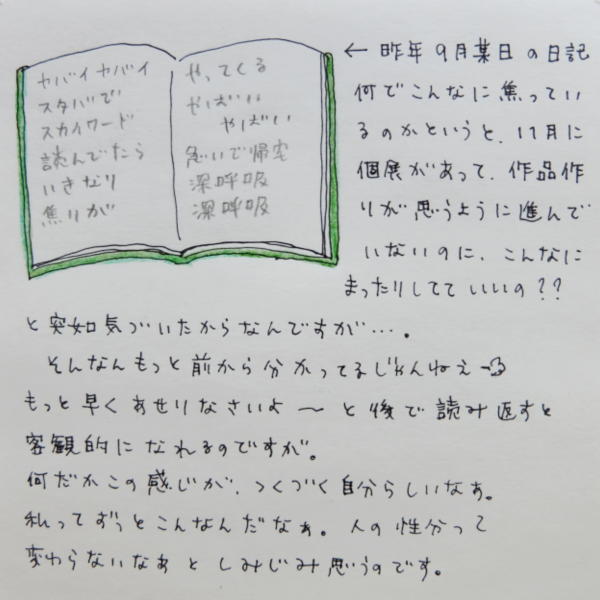 ヤバイヤバイ
スタバで
スカイワード
読んでたら
いきなり
焦りが
やってくる
やばい
やばい
急いで帰宅
深呼吸
深呼吸
← 昨年9月某日の日記
何でこんなに焦ってい
るのかというと、11月に
個展があって、作品作
りが思うように進んで
いないのに、こんなに
まったりしてていいの??
と突如気づいたからなんですが…。
そんなんもっと前から分かってるじゃんねえ
もっと早くあせりなさいよ〜と後で読み返すと
客観的になれるのですが。
何だかこの感じが、つくづく自分らしいなぁ。
私ってずっとこんなんだなぁ。人の性分って
変わらないなあとしみじみ思うのです。